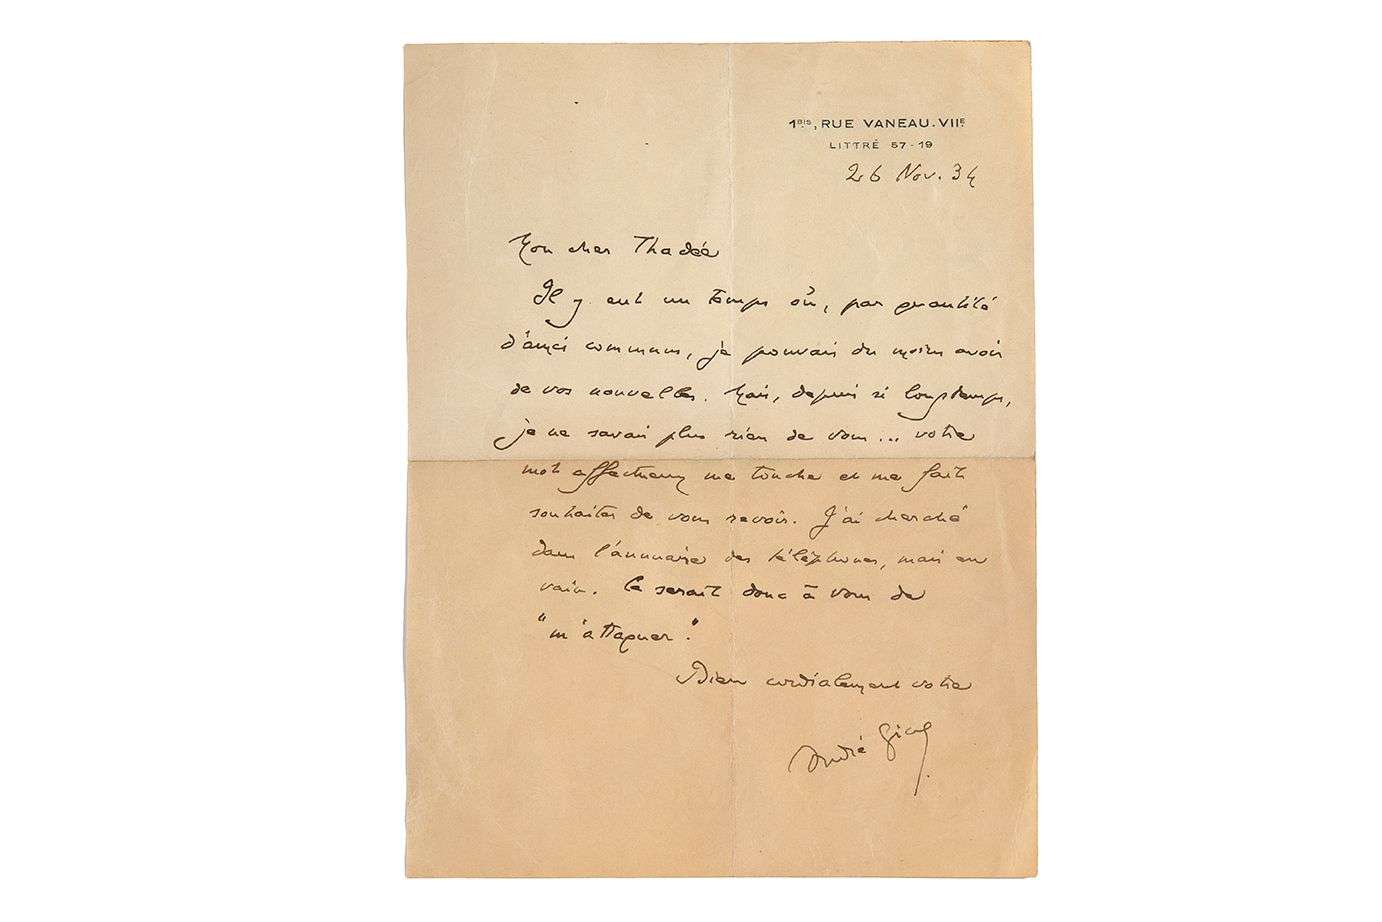 1BIS, RUE VANEAU. VIIE
LITTRÉ 57-19
26 Nov. 34
Mon cher Thadée
Il y eut un temps où, par quantité
d'amis communs, je pouvais du moins avoir
de vos nouvelles. Mais, depuis si longtemps,
je ne savais plus rien de vous... votre
mot affectueux me touche et me fait
souhaiter de vous revoir. J'ai cherché
dans l'annuaire des téléphones, mais en
vain. Ce serait donc à vous de
"m'attaquer".
Bien cordialement votre
André Gide